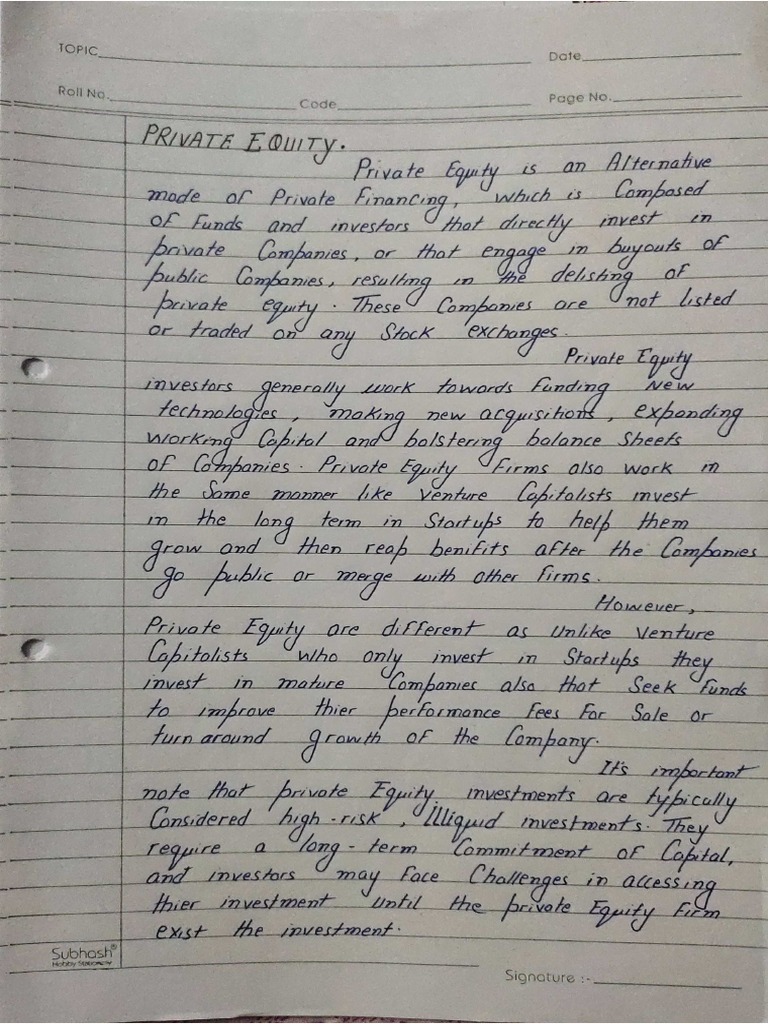 TOPIC
Date
Roll No.
Code
Page No.
PRIVATE EQUITY.
Private Equity is an Alternative
mode of Private Financing, which is Composed
of Funds and investors that directly invest in
private Companies, or that engage in buyouts of
public Companies, resulting in the delisting of
private equity. These Companies are not listed
or traded on any Stock exchanges.
Private Equity
investors generally work towards Funding New
technologies, making new acquisitions, expanding
working Capital and bolstering balance Sheets
of Companies. Private Equity Firms also work in
the Same manner like Venture Capitalists invest
in the long term in Startups to help them
grow and then reap benifits after the Companies
go public or merge with other firms.
However,
Private Equity are different as Unlike Venture
Capitalists who only invest in Startups they
invest in mature Companies also that Seek Funds
to improve thier performance Fees For Sale or
turn around growth of the Company.
It's important
note that private Equity investments are typically
Considered high-risk, Illiquid investments. They
require a long-term Commitment of Capital,
and investors may Face Challenges in accessing
thier investment Until the private Equity Firm
exist the investment.
Subhash®
Hobby Stationery
Signature :-